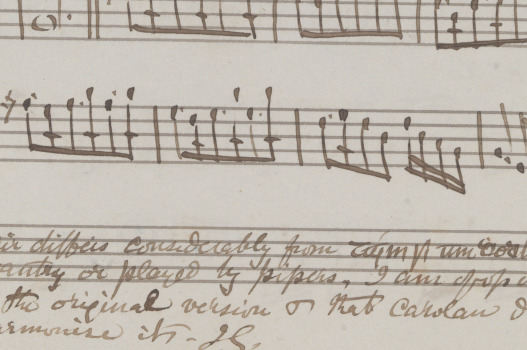 air differs considerably from
or played by pipers, I am of op
the original version & that Carolan d
armonise it. J.G.